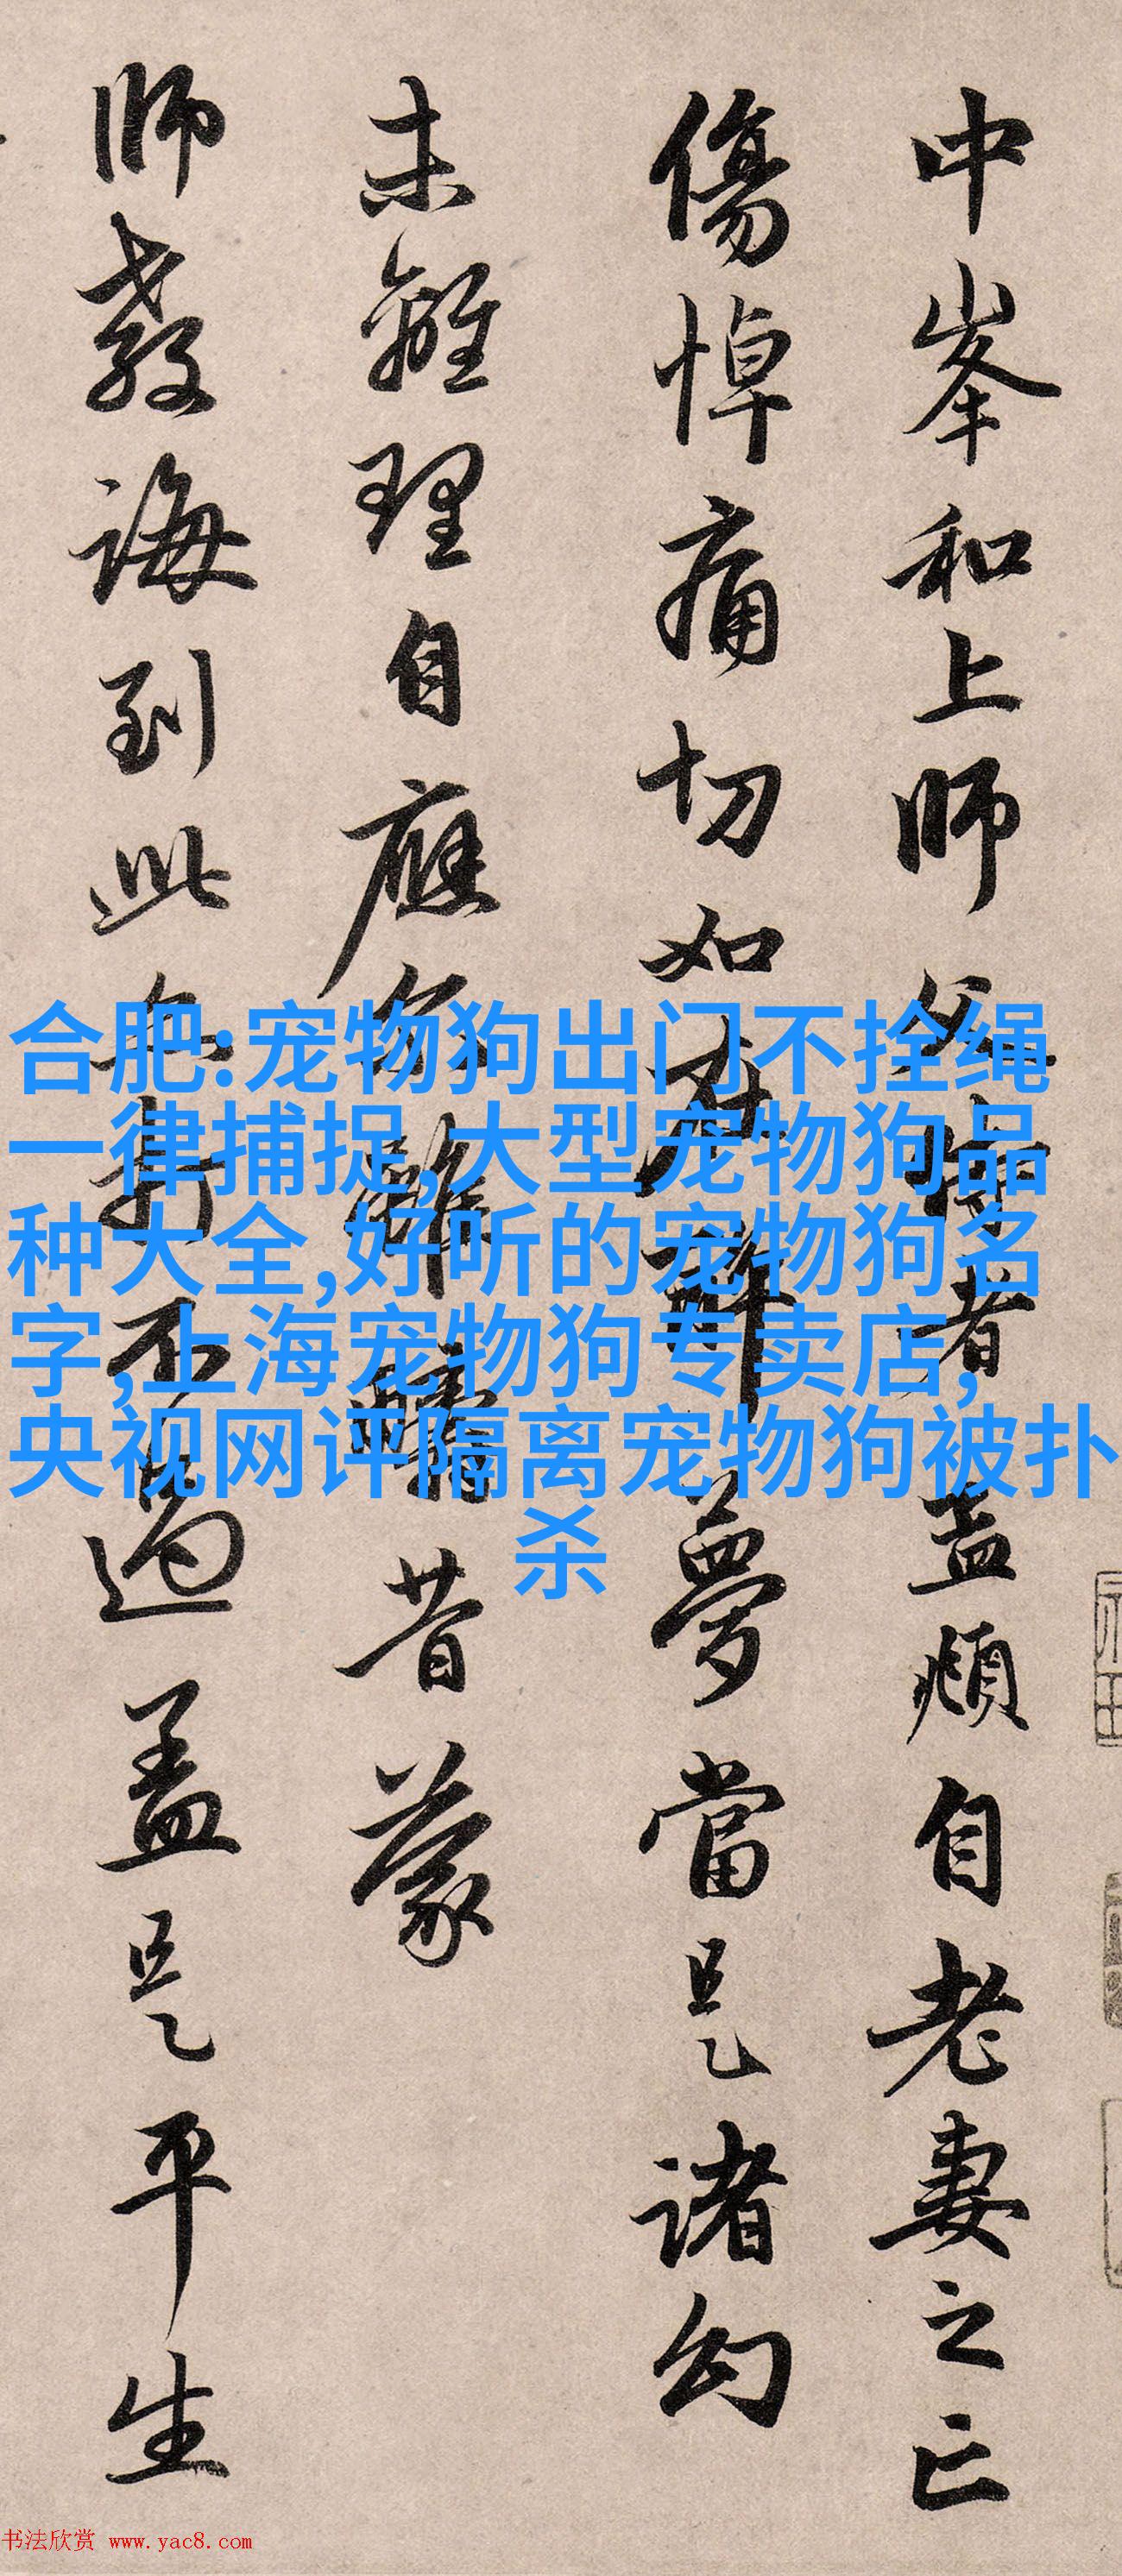 中峯和上師父侍者孟頫自老妻之亡
傷悼痛切如在醉夢當是諸幻
未離理自應尔雖疇昔蒙
師教誨到此亦打不過盖是平生
合肥:宠物狗出门不拴绳
一律捕捉,大型宠物狗品
种大全,好听的宠物狗名
字,上海宠物狗专卖店,
央视网评隔离宠物狗被扑
杀
书法欣赏 www.yac8.com